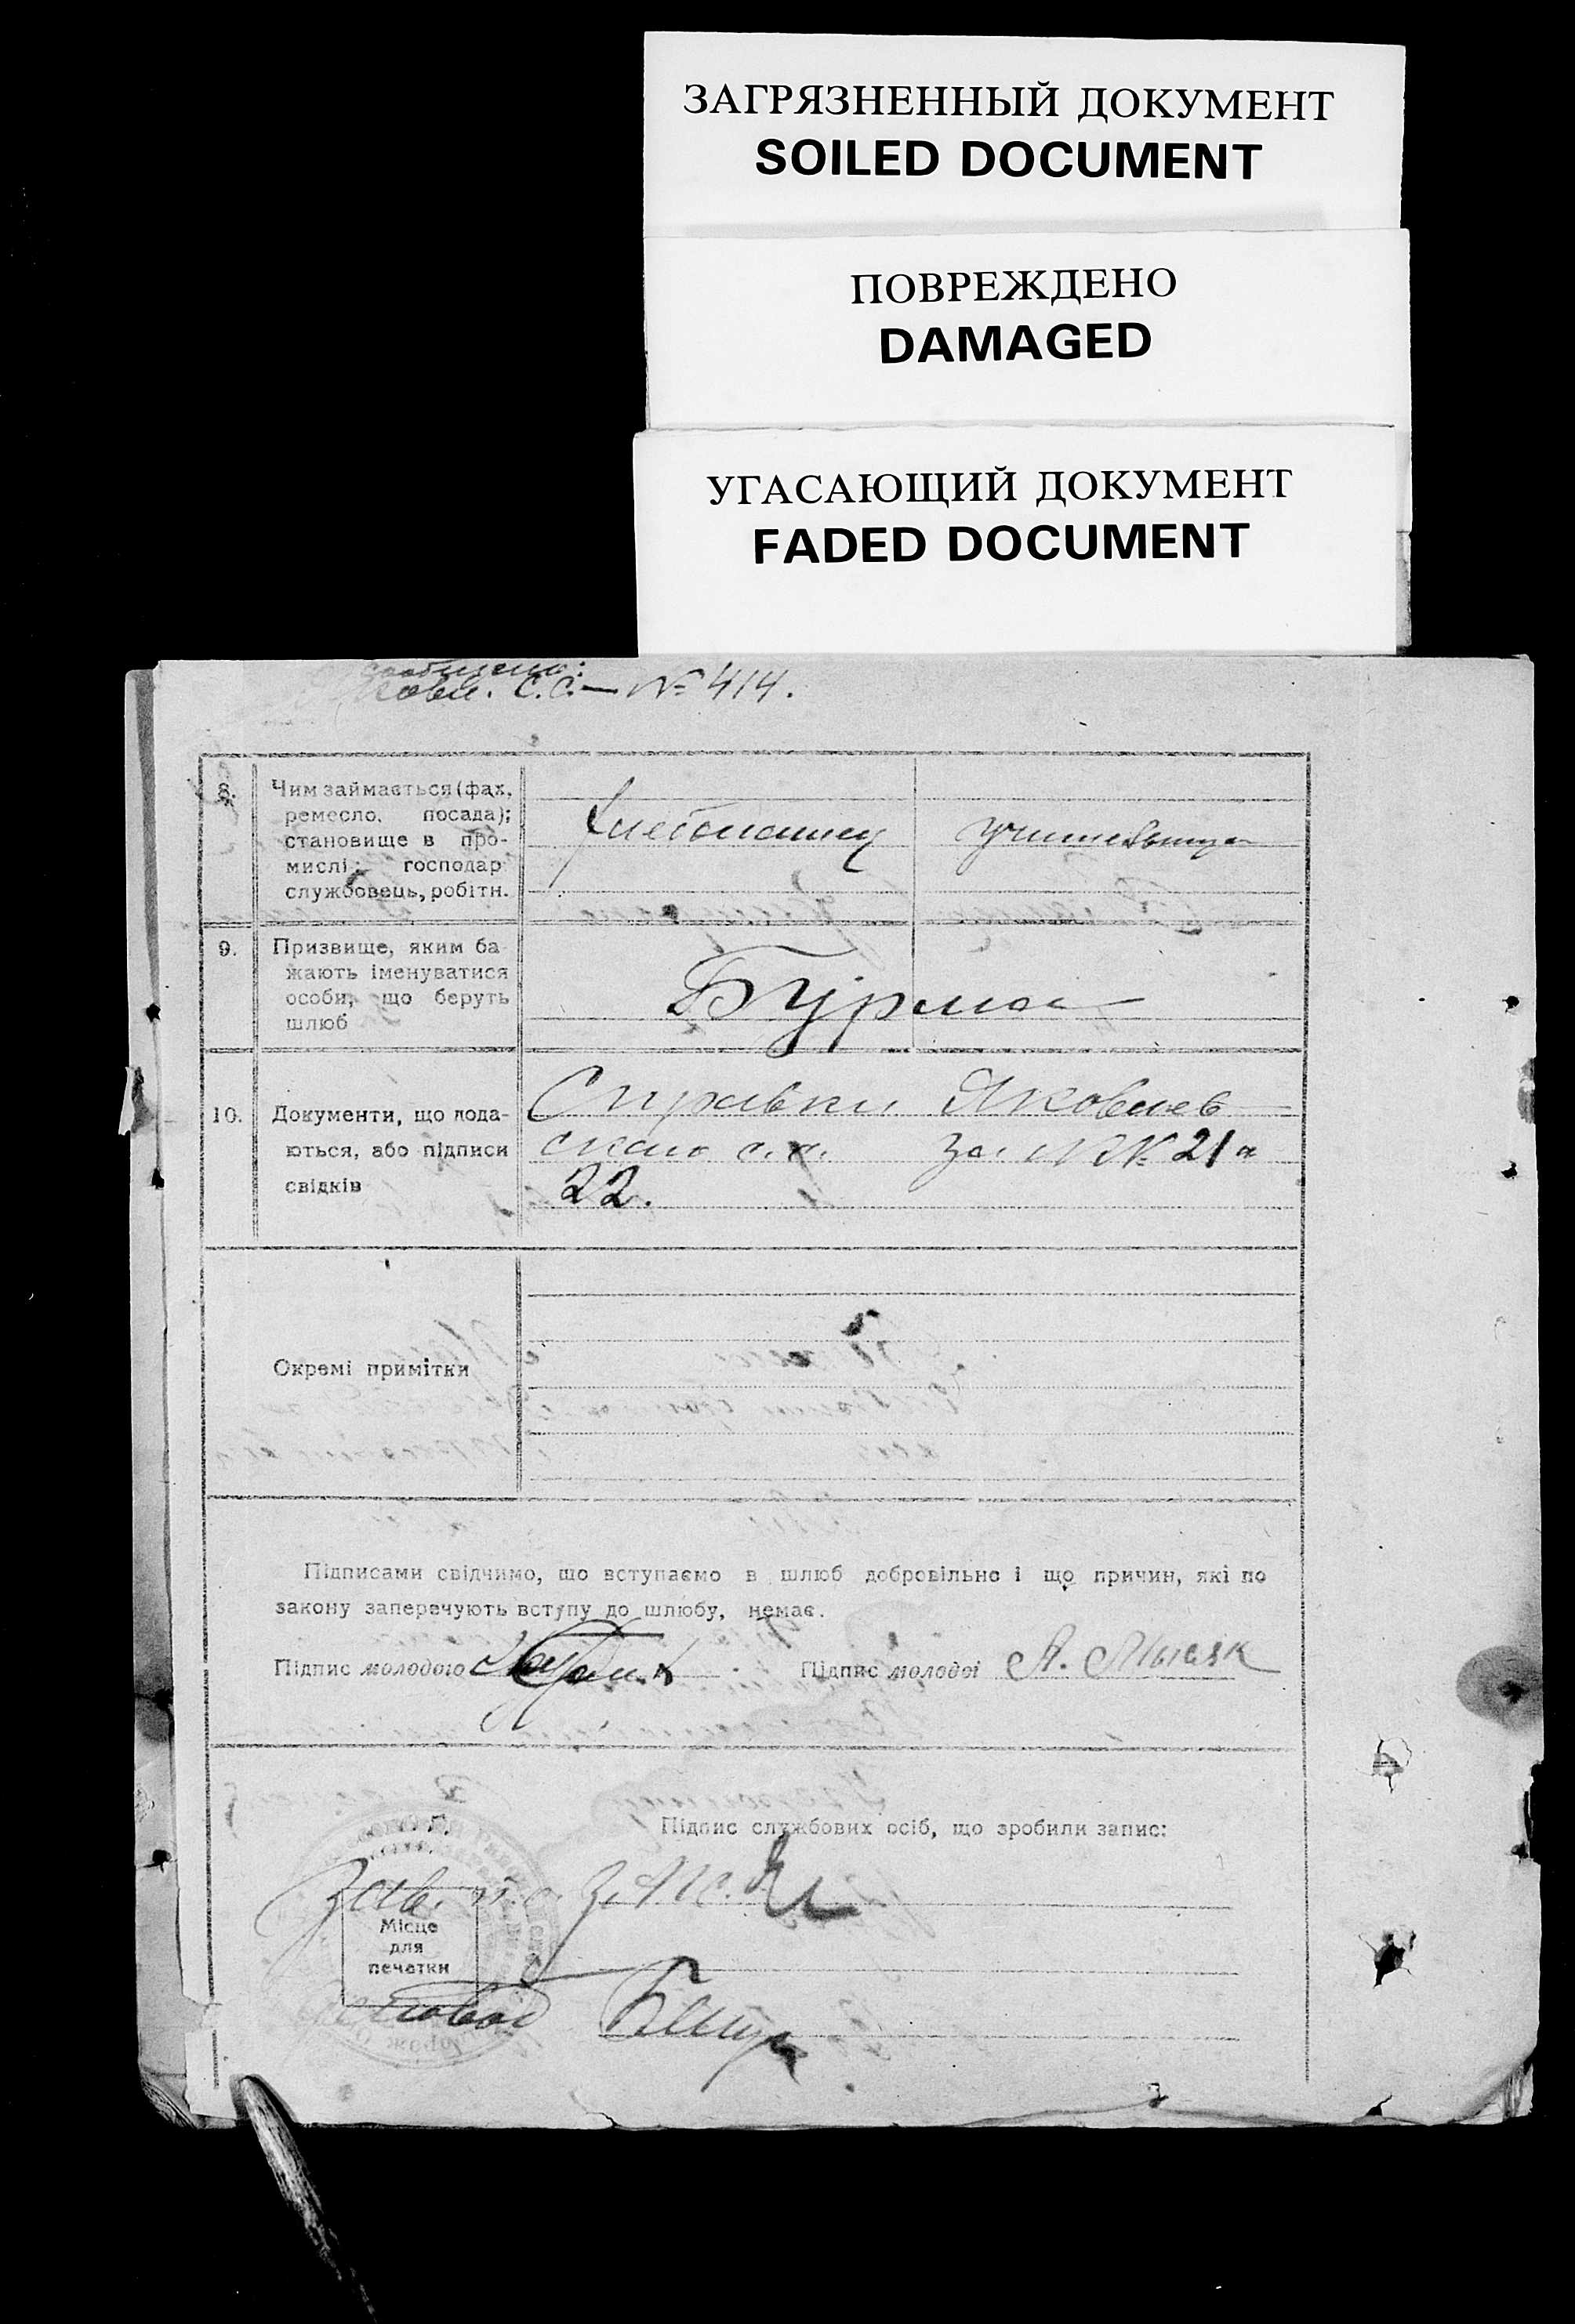 ЗАГРЯЗНЕННЫЙ ДОКУМЕНТ
SOILED DOCUMENT
ПОВРЕЖДЕНО
DAMAGED
УГАСАЮЩИЙ ДОКУМЕНТ
FADED DOCUMENT
сообщено:
С.С. — № 414.
8.
Чим займається (фах,
ремесло, посада);
становище в про-
мислі: господар
службовець, робітн.
хлебопашец
учительница
9.
Призвище, яким ба-
жають іменуватися
особи, що беруть
шлюб
Бурма
10.
Документи, що дода-
ються, або підписи
свідків
Справки Яковлев
ского с.с. за №№ 21 и
22.
Окремі примітки
Підписами свідчимо, що вступаємо в шлюб добровільно і що причин, які по
закону заперечують вступу до шлюбу, немає.
Підпис молодого
Підпис молодої А.
Підпис службових осіб, що зробили запис:
Зав.
Місце
для
печатки